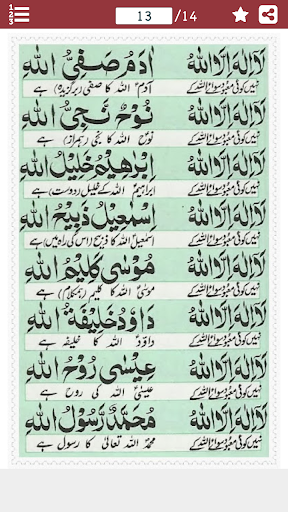 123
13 /14
لَا إِلٰهَ إِلَّا اللّٰهُ اٰدَمُ صَفِيُّ اللّٰهِ
نہیں کوئی معبود سوائے اللہ کے آدمؑ اللہ کا صفی (برگزیدہ) ہے
لَا إِلٰهَ إِلَّا اللّٰهُ نُوْحٌ نَجِيُّ اللّٰهِ
نہیں کوئی معبود سوائے اللہ کے نوحؑ اللہ کا نجی (ہمراز) ہے
لَا إِلٰهَ إِلَّا اللّٰهُ اِبْرٰهِيْمُ خَلِيْلُ اللّٰهِ
نہیں کوئی معبود سوائے اللہ کے ابراہیمؑ اللہ کے خلیل (دوست) ہے
لَا إِلٰهَ إِلَّا اللّٰهُ اِسْمٰعِيْلُ ذَبِيْحُ اللّٰهِ
نہیں کوئی معبود سوائے اللہ کے اسمٰعیلؑ اللہ کا ذبیح (اس کی راہ میں) ہے
لَا إِلٰهَ إِلَّا اللّٰهُ مُوْسٰى كَلِيْمُ اللّٰهِ
نہیں کوئی معبود سوائے اللہ کے موسیٰؑ اللہ کا کلیم (ہمکلام) ہے
لَا إِلٰهَ إِلَّا اللّٰهُ دَاوٗدُ خَلِيْفَةُ اللّٰهِ
نہیں کوئی معبود سوائے اللہ کے داؤدؑ اللہ کا خلیفہ ہے
لَا إِلٰهَ إِلَّا اللّٰهُ عِيْسٰى رُوْحُ اللّٰهِ
نہیں کوئی معبود سوائے اللہ کے عیسیٰؑ اللہ کی روح ہے
لَا إِلٰهَ إِلَّا اللّٰهُ مُحَمَّدٌ رَّسُوْلُ اللّٰهِ
نہیں کوئی معبود سوائے اللہ کے محمدؐ اللہ تعالیٰ کا رسول ہے